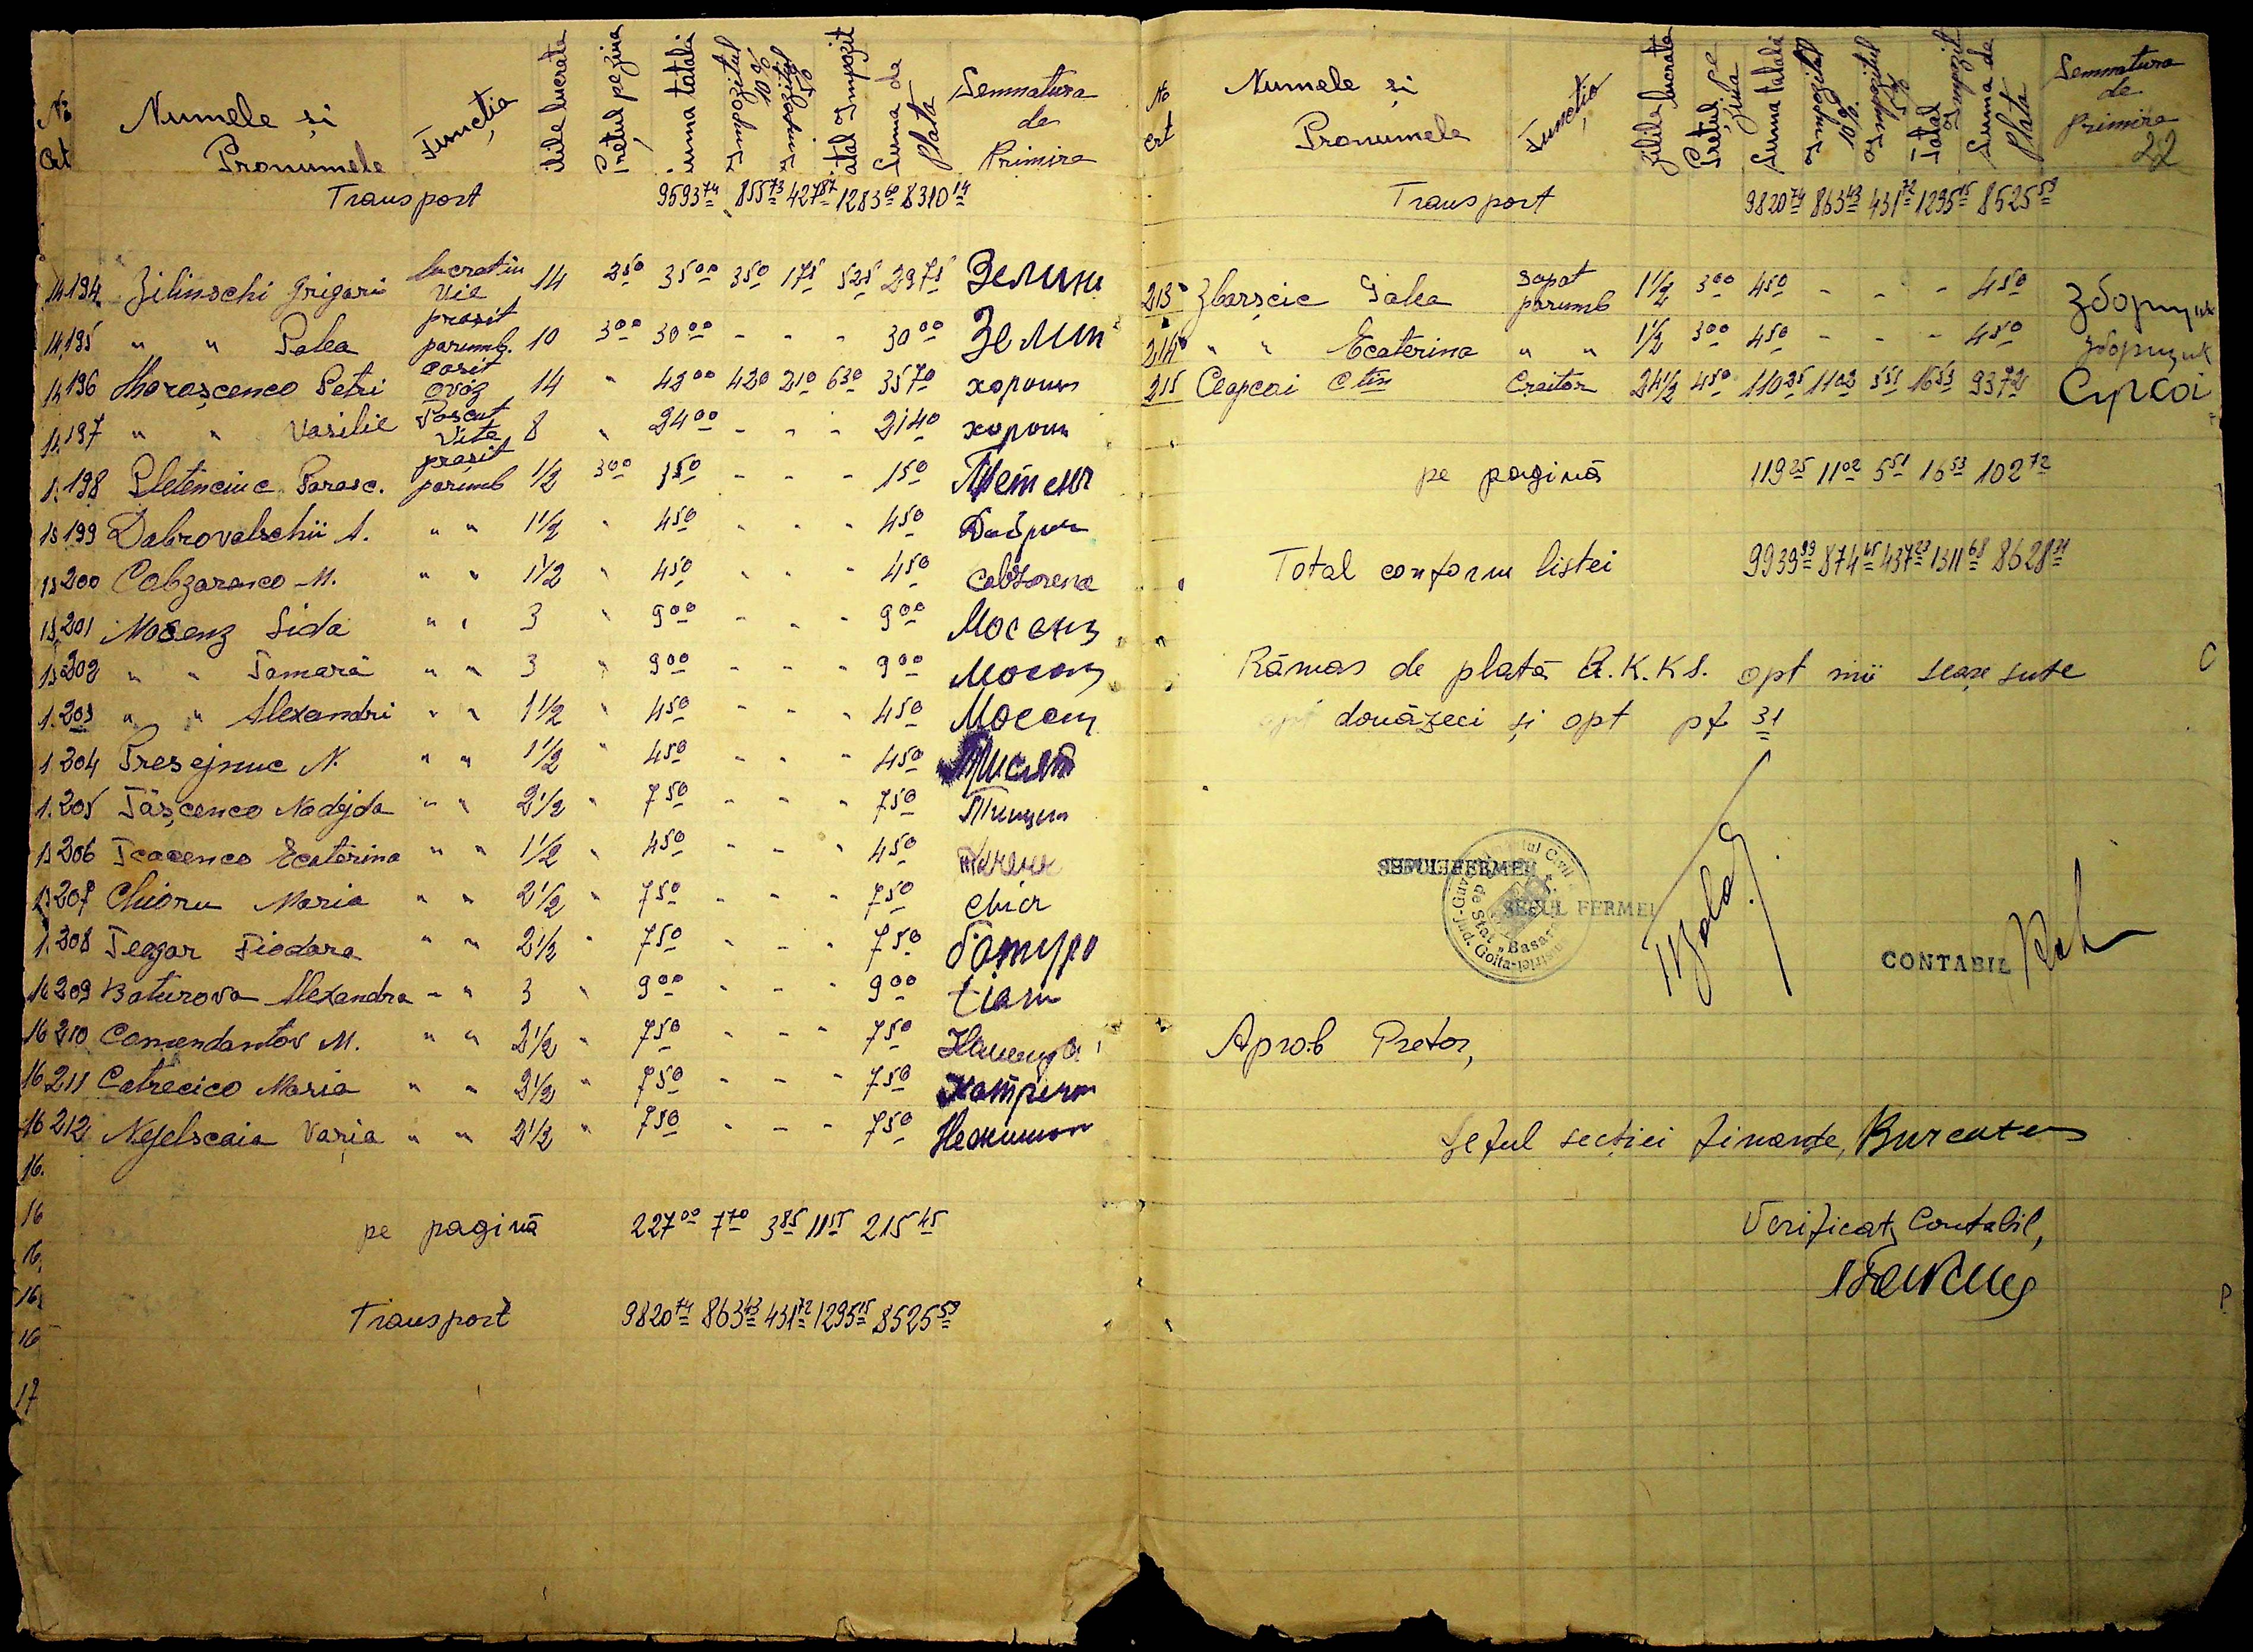 No Crt Numele și Pronumele Funcția Zilele lucrate Prețul pe ziua Suma totală Impozitul 10% Impozitul 5% Total Impozit Suma de plată Semnatura de Primire
Transport 9593 74 855 73 427 87 1283 60 8310 14
194 Zilinschi Grigori lucrativ vie 14 2 50 35 00 3 50 1 75 5 25 29 75 Зелинс
195 " " Palea prașit porumb. 10 3 00 30 00 - - - 30 00
196 Horașcenco Petri cosit ovăz 14 " 42 00 4 20 2 10 6 30 35 70 хорошн
197 " " Vasilie Pascut Vite 8 " 24 00 - - - 21 40 хорошн
198 Pletenciuc Parasc. prașit porumb 1/2 3 00 1 50 - - - 1 50
199 Dabrovalschii A. " " 1 1/2 " 4 50 - - - 4 50
200 Cabzaranco M. " " 1 1/2 " 4 50 - - - 4 50
201 Mosenz Lida " " 3 " 9 00 - - - 9 00 Мосенз
202 " " Tamara " " 3 " 9 00 - - - 9 00 Мосенз
203 " " Alexandri " " 1 1/2 " 4 50 - - - 4 50
204 Presejnuc N. " " 1 1/2 " 4 50 - - - 4 50
205 Tășcenco Nadejda " " 2 1/2 " 7 50 - - - 7 50
206 Tcacenco Ecaterina " " 1 1/2 " 4 50 - - - 4 50
207 Chioru Maria " " 2 1/2 " 7 50 - - - 7 50
208 Teagar Fiodora " " 2 1/2 " 7 50 - - - 7 50 Батуро
209 Baturova Alexandra " " 3 " 9 00 - - - 9 00
210 Comendantov M. " " 2 1/2 " 7 50 - - - 7 50
211 Catrecico Maria " " 2 1/2 " 7 50 - - - 7 50
212 Nejelscaia Varia " " 2 1/2 " 7 50 - - - 7 50
pe pagină 227 00 7 70 3 85 11 55 215 45
Transport 9820 74 863 43 431 72 1295 15 8525 59
No Crt Numele și Pronumele Funcția Zilele lucrate Prețul pe ziua Suma totală Impozitul 10% Impozitul 5% Total Impozit Suma de plată Semnatura de Primire
22
Transport 9820 74 863 43 431 72 1295 15 8525 59
213 Zbarșcic Galea sapat porumb 1 1/2 3 00 4 50 - - - 4 50 Зборщик
214 " " Ecaterina " " 1 1/2 3 00 4 50 - - - 4 50 Зборщик
215 Ceapcai C-tin Croitor 24 1/2 4 50 110 25 11 02 5 51 16 53 93 72
pe pagină 119 25 11 02 5 51 16 53 102 72
Total conform listei 9939 99 874 45 437 23 1311 68 8628 31
Rămas de plată R.K.K.S. opt mii șease sute
douăzeci și opt pf 31
ȘEFUL FERMEI
ȘEFUL FERMEI
CONTABIL
Aprob Pretor,
Șeful secției finanțe,
Verificat, Contabil,